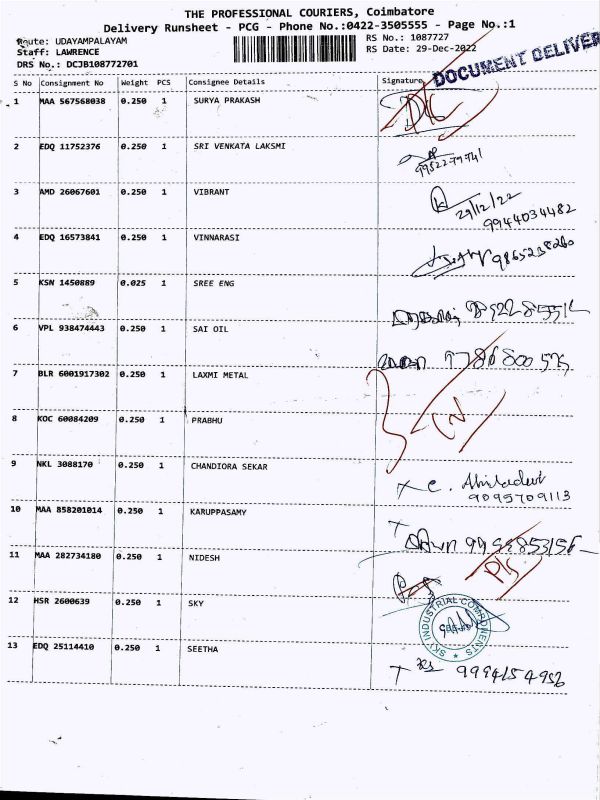 THE PROFESSIONAL COURIERS, Coimbatore
Delivery Runsheet - PCG - Phone No.:0422-3505555 - Page No.:1
Route: UDAYAMPALAYAM
Staff: LAWRENCE
DRS No.: DCJB108772701
RS No.: 1087727
RS Date: 29-Dec-2022
DOCUMENT DELIVER
S No Consignment No Weight PCS Consignee Details Signature
1 MAA 567568038 0.250 1 SURYA PRAKASH
2 EDQ 11752376 0.250 1 SRI VENKATA LAKSMI
3 AMD 26067601 0.250 1 VIBRANT 29/12/22
9944034482
4 EDQ 16573841 0.250 1 VINNARASI 9865238260
5 KSN 1450889 0.025 1 SREE ENG
6 VPL 938474443 0.250 1 SAI OIL
7 BLR 6001917302 0.250 1 LAXMI METAL
8 KOC 60084209 0.250 1 PRABHU
9 NKL 3088170 0.250 1 CHANDIORA SEKAR
9095709113
10 MAA 858201014 0.250 1 KARUPPASAMY
11 MAA 282734180 0.250 1 NIDESH
12 HSR 2600639 0.250 1 SKY
SKY INDUSTRIAL COMPONENTS
13 EDQ 25114410 0.250 1 SEETHA 9994154956